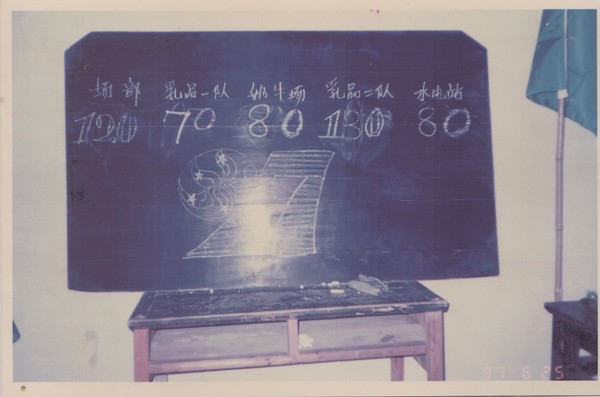 场部 乳品一队 奶牛场 乳品二队 水电站
120 70 80 130 80
97 6 25